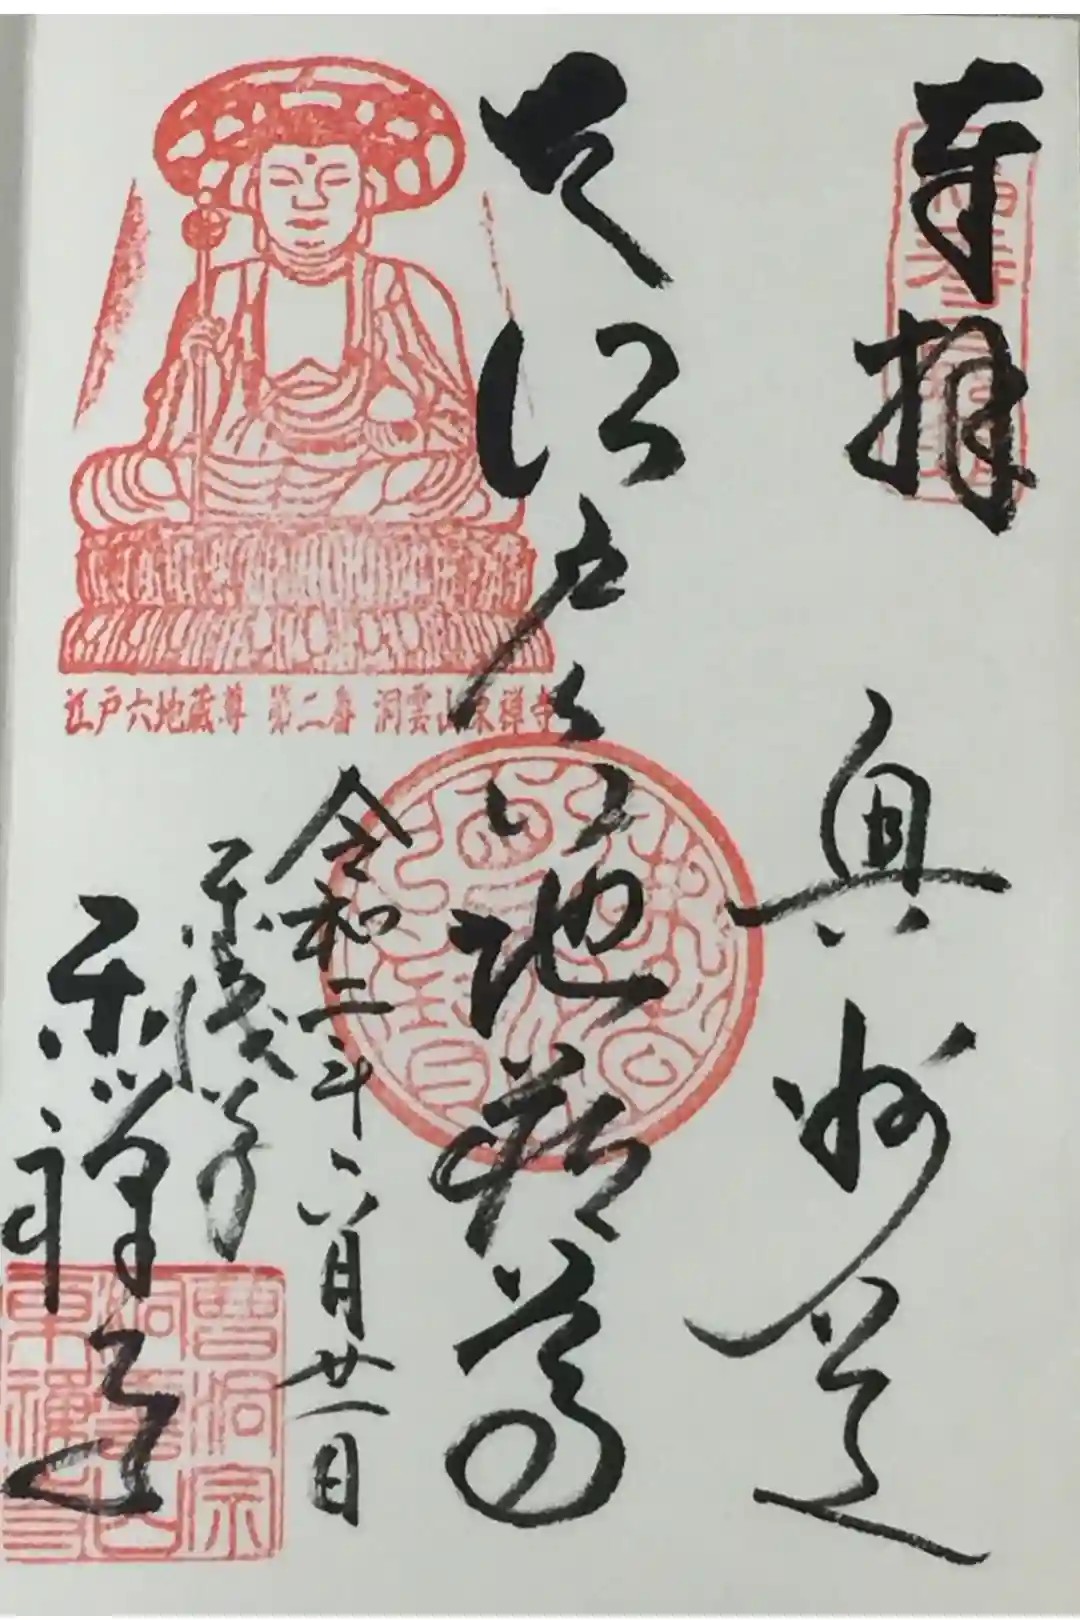 奉拝
奥州道
大江戸六地蔵尊
令和二年六月廿一日
東浅草
東禅寺
江戸六地蔵尊 第二番 洞雲山東禅寺
曹洞宗
洞雲山
東禅寺